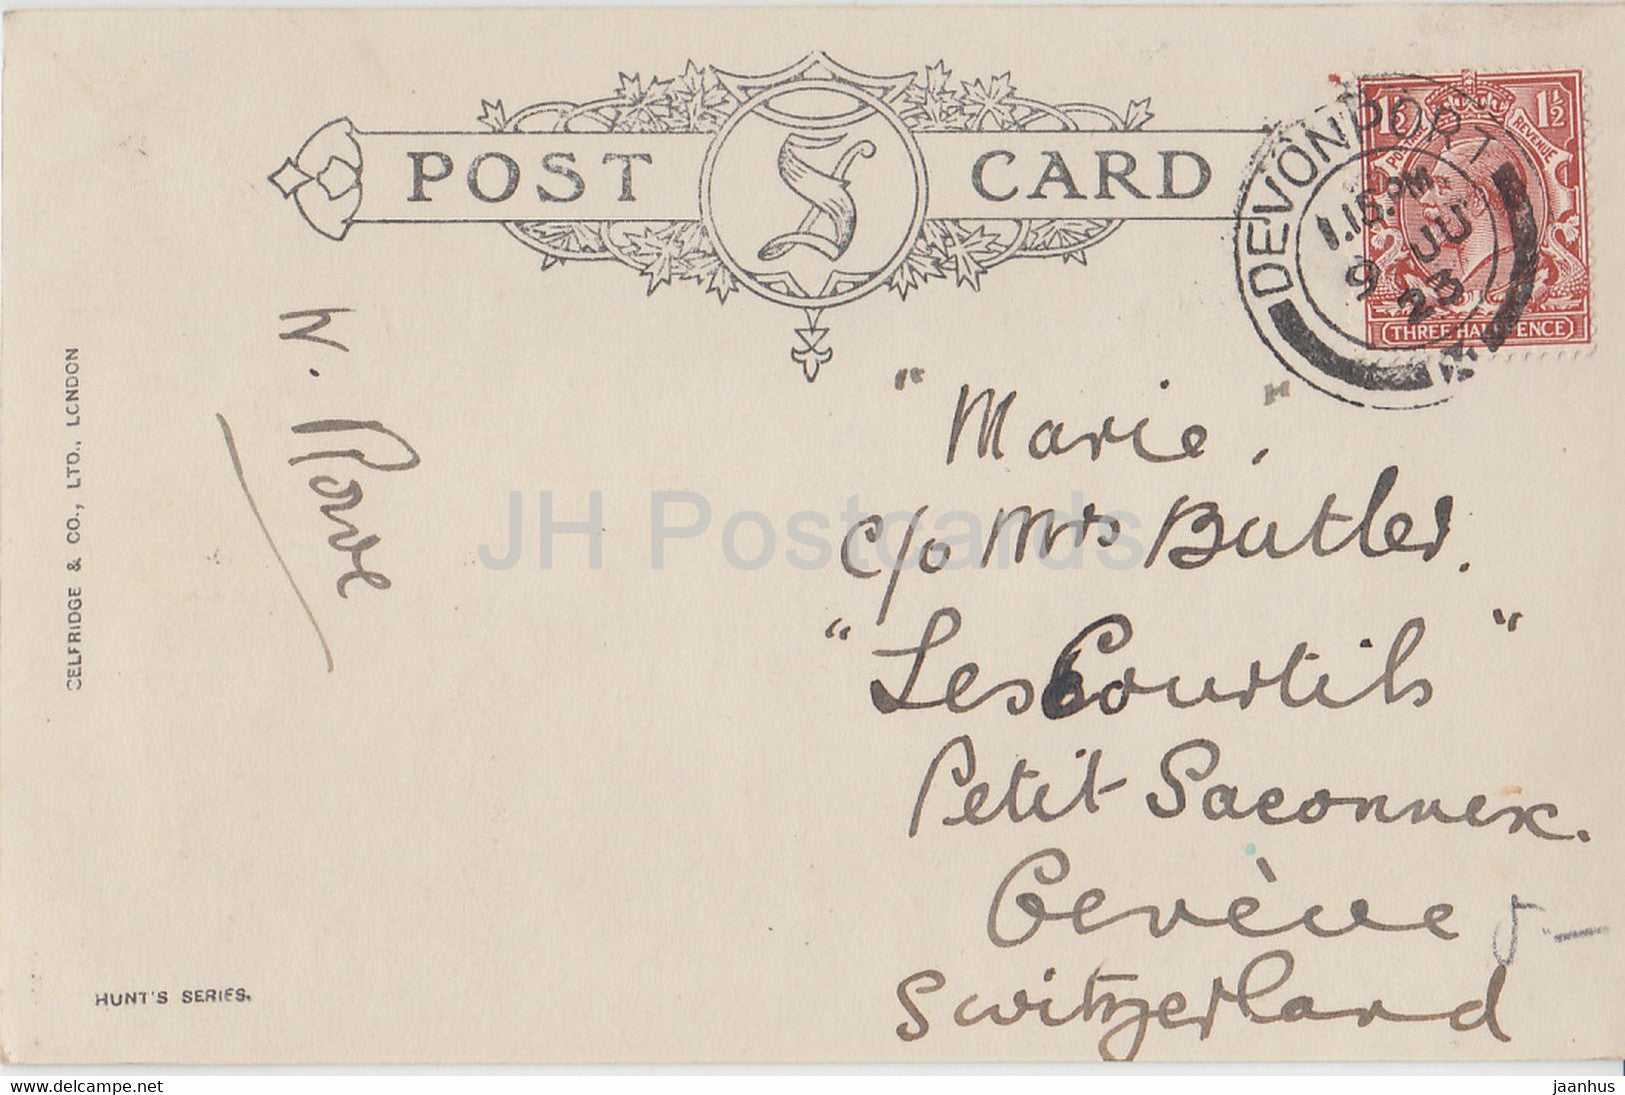 POST CARD
S
DEVONPORT
1.15.PM
9 JU
23
1½ 1½
POSTAGE REVENUE
THREE HALF PENCE
W. Rowe
"Marie,"
c/o Mrs Butler.
"Les Courtils"
Petit Saconnex.
Genève
Switzerland
SELFRIDGE & CO., LTD., LONDON
HUNT'S SERIES.
JH Postcards
www.delcampe.net
jaanhus